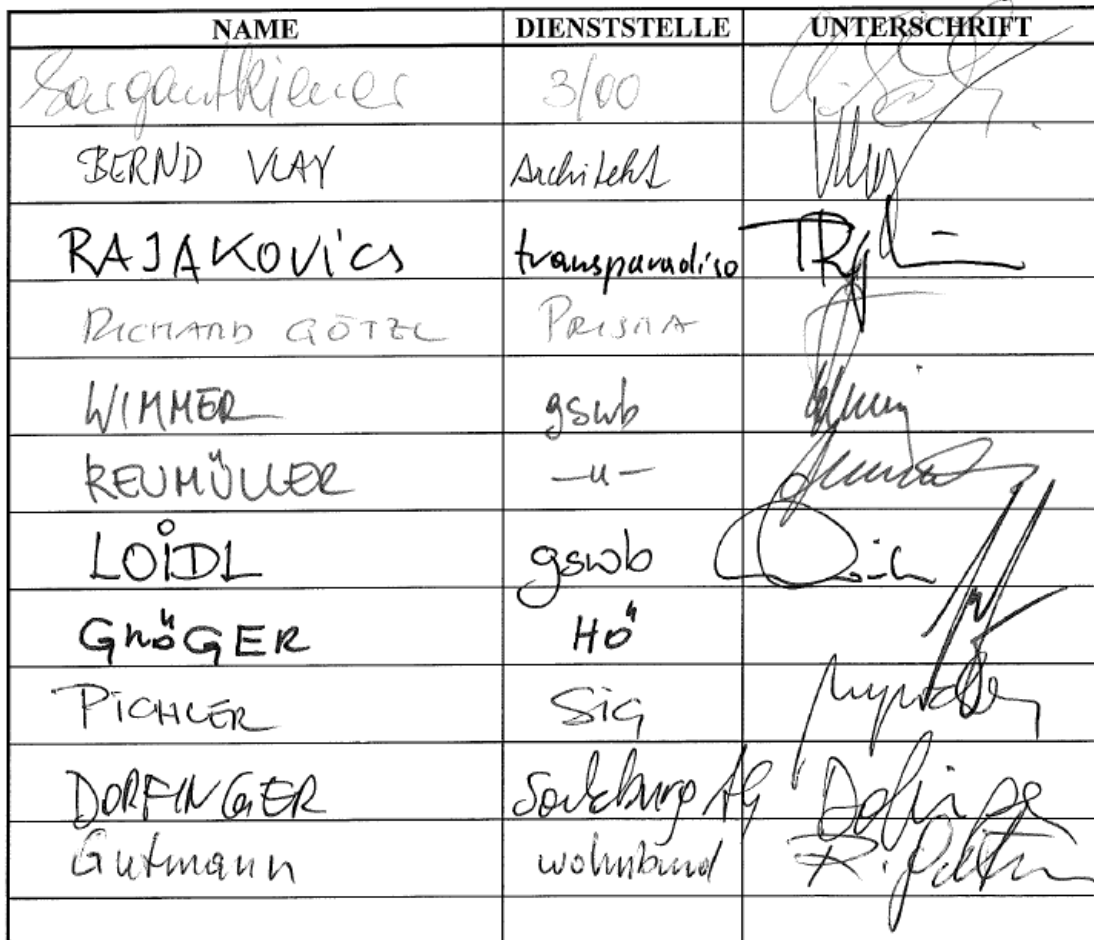 NAME DIENSTSTELLE UNTERSCHRIFT
3/00
BERND VLAY Architekt
RAJAKOVICS transparadiso
RICHARD GÖTZL PRISMA
WIMMER gswb
REUMÜLLER —"—
LOIDL gswb
GRÖGER HÖ
PICHLER SIG
DORFINGER Salzburg AG Dorfinger
Gutmann wohnbund R. Gutm